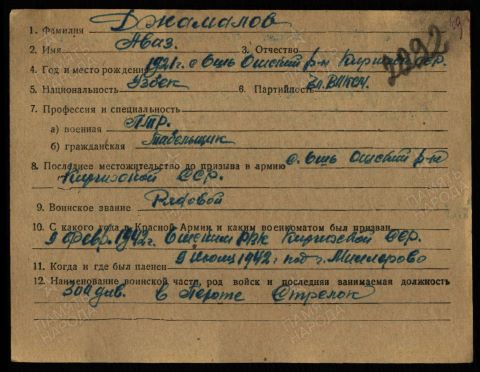 1. Фамилия Джамалов
2. Имя Аваз. 3. Отчество
4. Год и место рождения 1921г. с. Ошь Ошский р-н Киргизск. ССР.
5. Национальность Узбек 6. Партийность Чл. ВЛКСМ.
2092
7. Профессия и специальность
а) военная ПТР.
б) гражданская Табельщик
8. Последнее местожительство до призыва в армию с. Ошь Ошский р-н
Киргизской ССР.
9. Воинское звание Рядовой
10. С какого года в Красной Армии и каким военкоматом был призван
9 февр. 1942г. Ошским РВК Киргизской ССР.
11. Когда и где был пленен 9 июля 1942г. под г. Миллерово
12. Наименование воинской части, род войск и последняя занимаемая должность
див. в Пероте Стрелок
ПАМЯТЬ НАРОДА